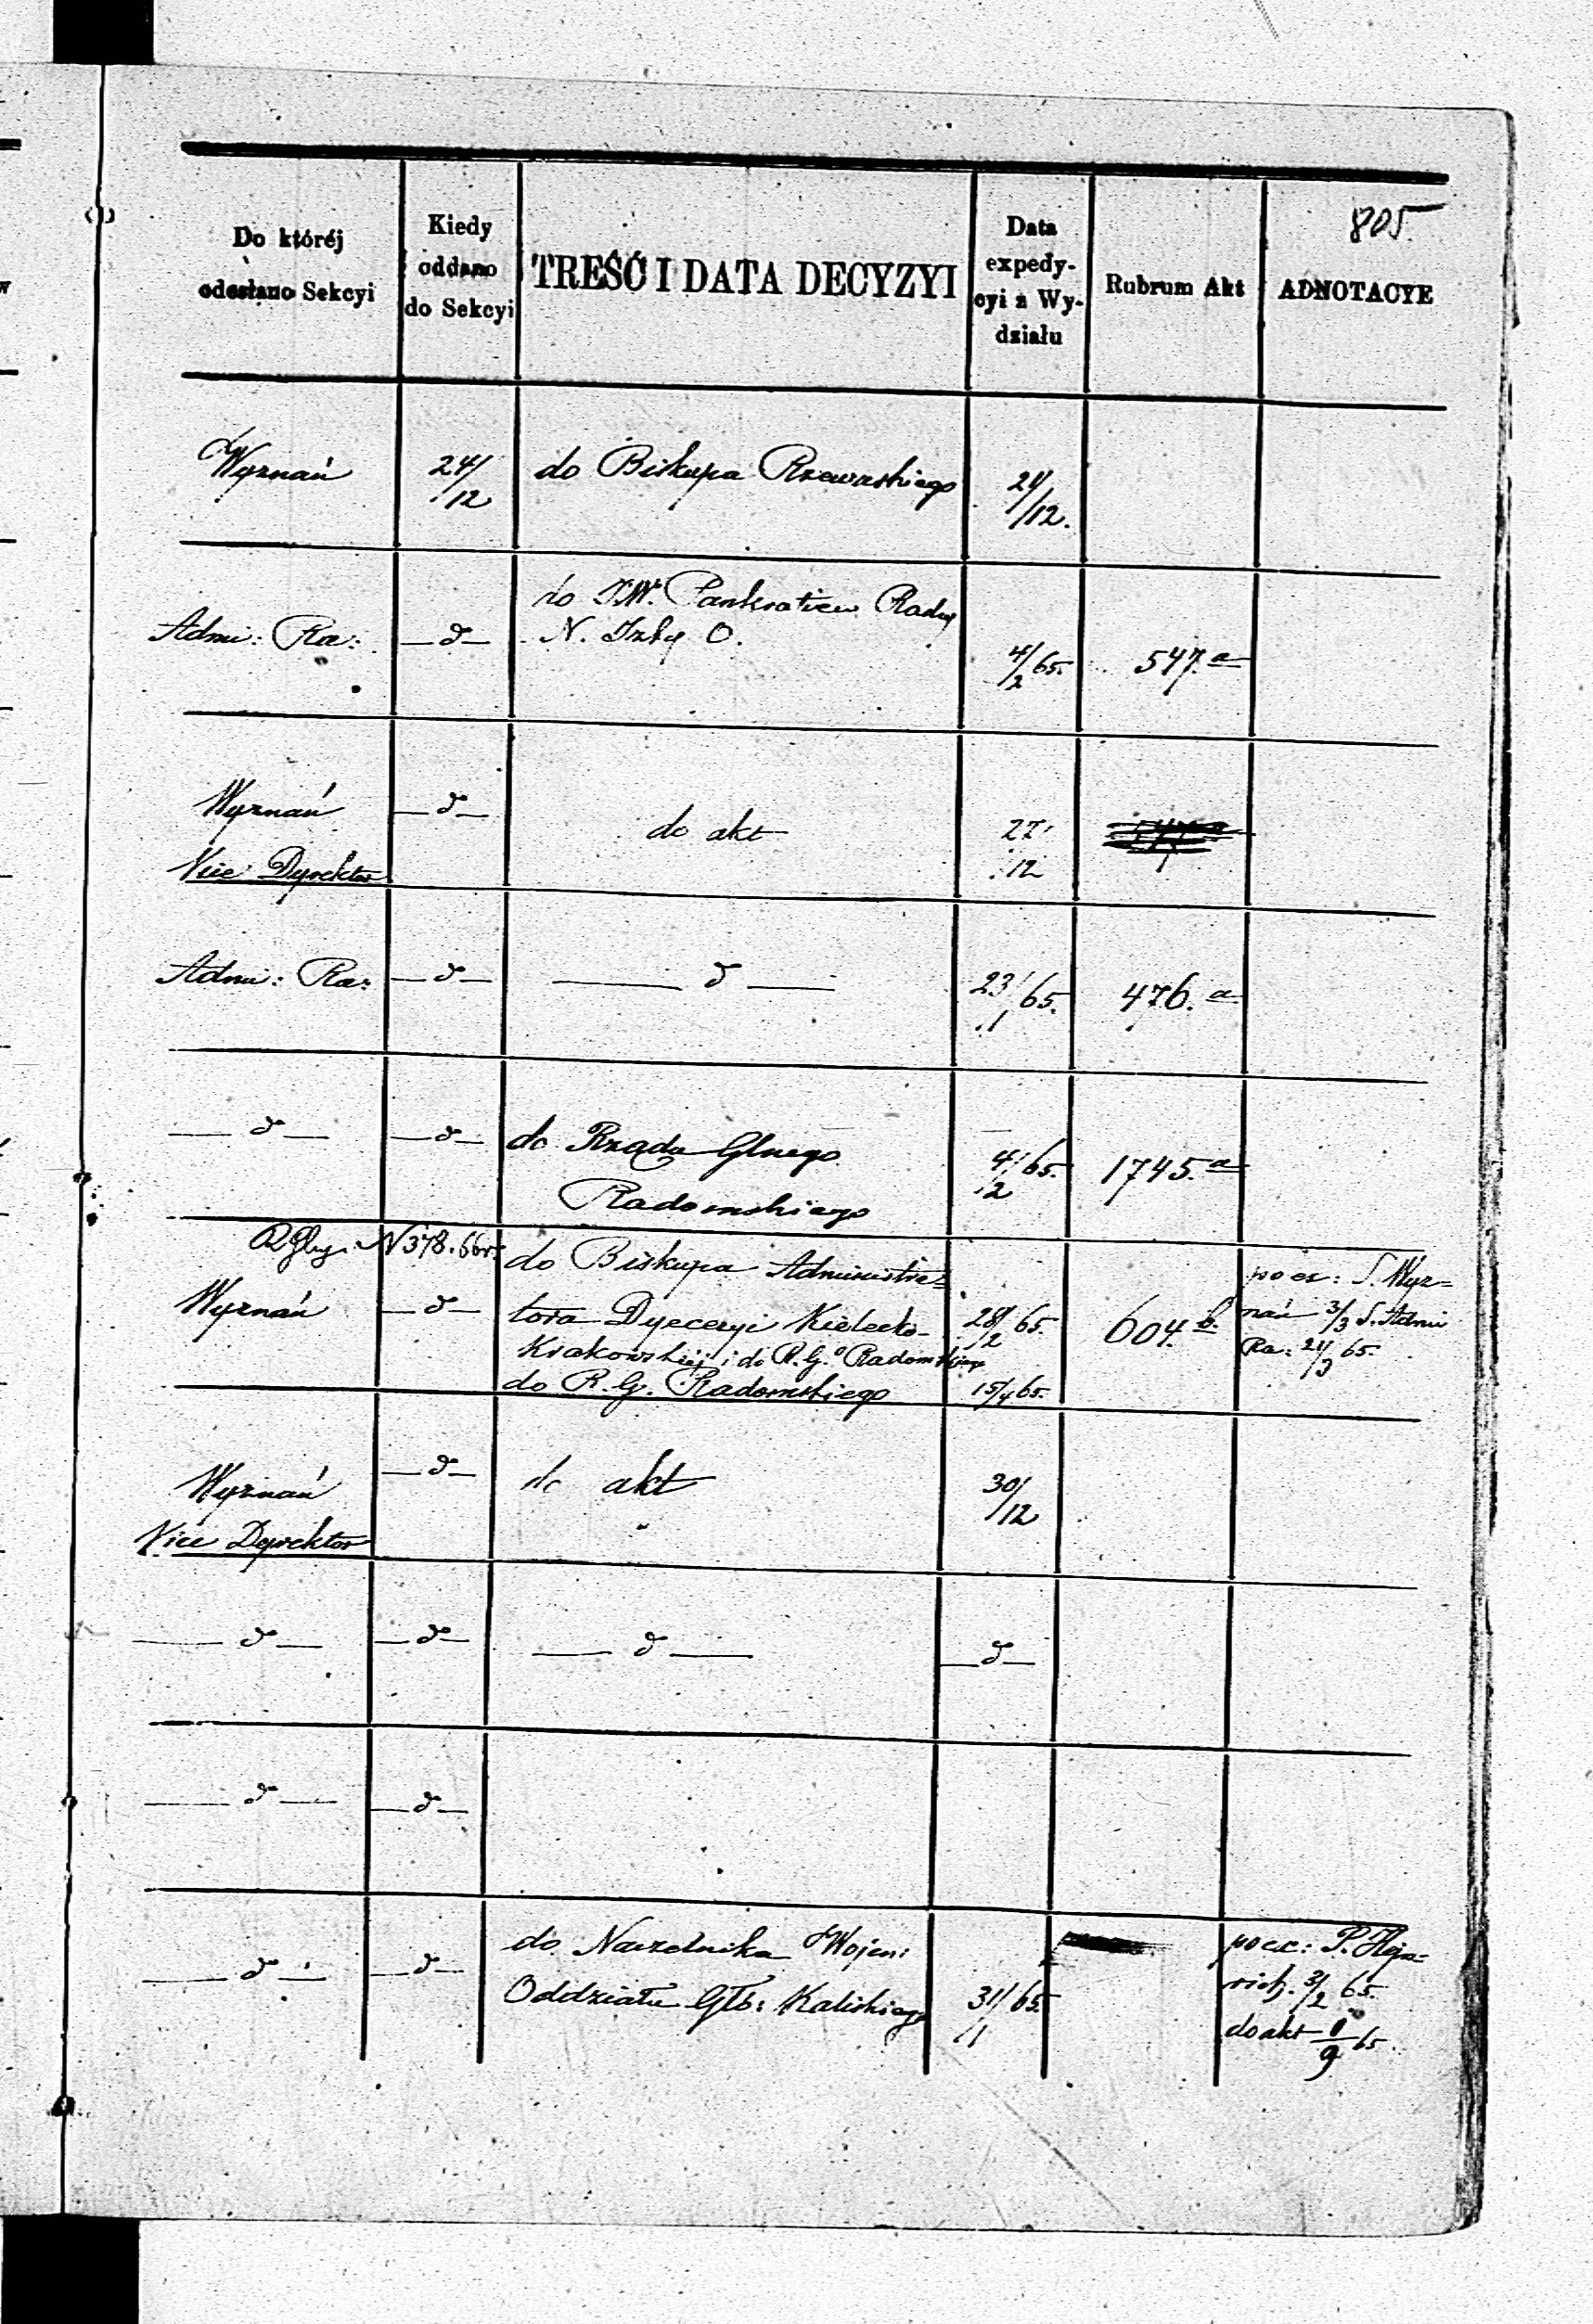 805.
Do któréj
odesłano Sekcyi
Kiedy
oddano
do Sekcyi
TREŚĆ I DATA DECYZYI
Data
expedy-
cyi z Wy-
działu
Rubrum Akt
ADNOTACYE
Wyznań
24/12
do Biskupa Rzewuskiego
24/12.
Admi: Ra:
—d—
do J.W. Pankratiew Rady
N. Izby O.
4/2 65.
547.a
Wyznań
Vice Dyrektor
—d—
do akt
27/12
Admi: Ra:
—d—
—d—
23/1 65.
476.a
—d—
—d—
do Rządu Glnego
Radomskiego
4/2 65.
1745.a
N 378.66r.
Wyznań
—d—
do Biskupa Administra=
tora Dyecezyi Kielecko-
Krakowskiéj i do R.G.o Radomskiego
do R.G. Radomskiego
28/2 65.
15/4 65.
604.b.
po ex: S. Wyz=
nań 3/3 S. Admi
Ra: 21/3 65.
Wyznań
Vice Dyrektor
—d—
do akt
30/12
—d—
—d—
—d—
—d—
—d—
—d—
—d—
—d—
do Naczelnika Wojen:
Oddziału Głb: Kaliskiego
31/1 65.
po ex: P.
3/2 65.
do akt 65.